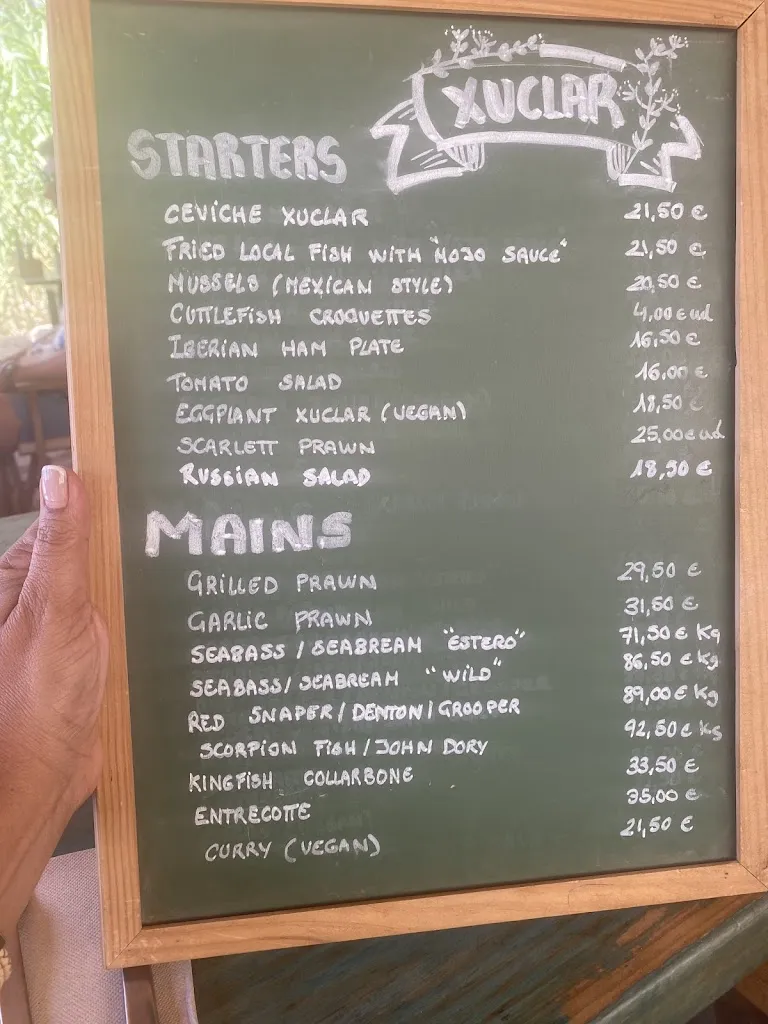 XUCLAR
STARTERS
CEVICHE XUCLAR 21,50 €
FRIED LOCAL FISH WITH "MOJO SAUCE" 21,50 €
MUSSELS (MEXICAN STYLE) 20,50 €
CUTTLEFISH CROQUETTES 4,00 € ud
IBERIAN HAM PLATE 16,50 €
TOMATO SALAD 16,00 €
EGGPLANT XUCLAR (VEGAN) 18,50 €
SCARLETT PRAWN 25,00 € ud
RUSSIAN SALAD 18,50 €
MAINS
GRILLED PRAWN 29,50 €
GARLIC PRAWN 31,50 €
SEABASS / SEABREAM "ESTERO" 71,50 € Kg
SEABASS / SEABREAM "WILD" 86,50 € Kg
RED SNAPER / DENTON / GROOPER 89,00 € Kg
SCORPION FISH / JOHN DORY 92,50 € Kg
KINGFISH COLLARBONE 33,50 €
ENTRECOTTE 35,00 €
CURRY (VEGAN) 21,50 €